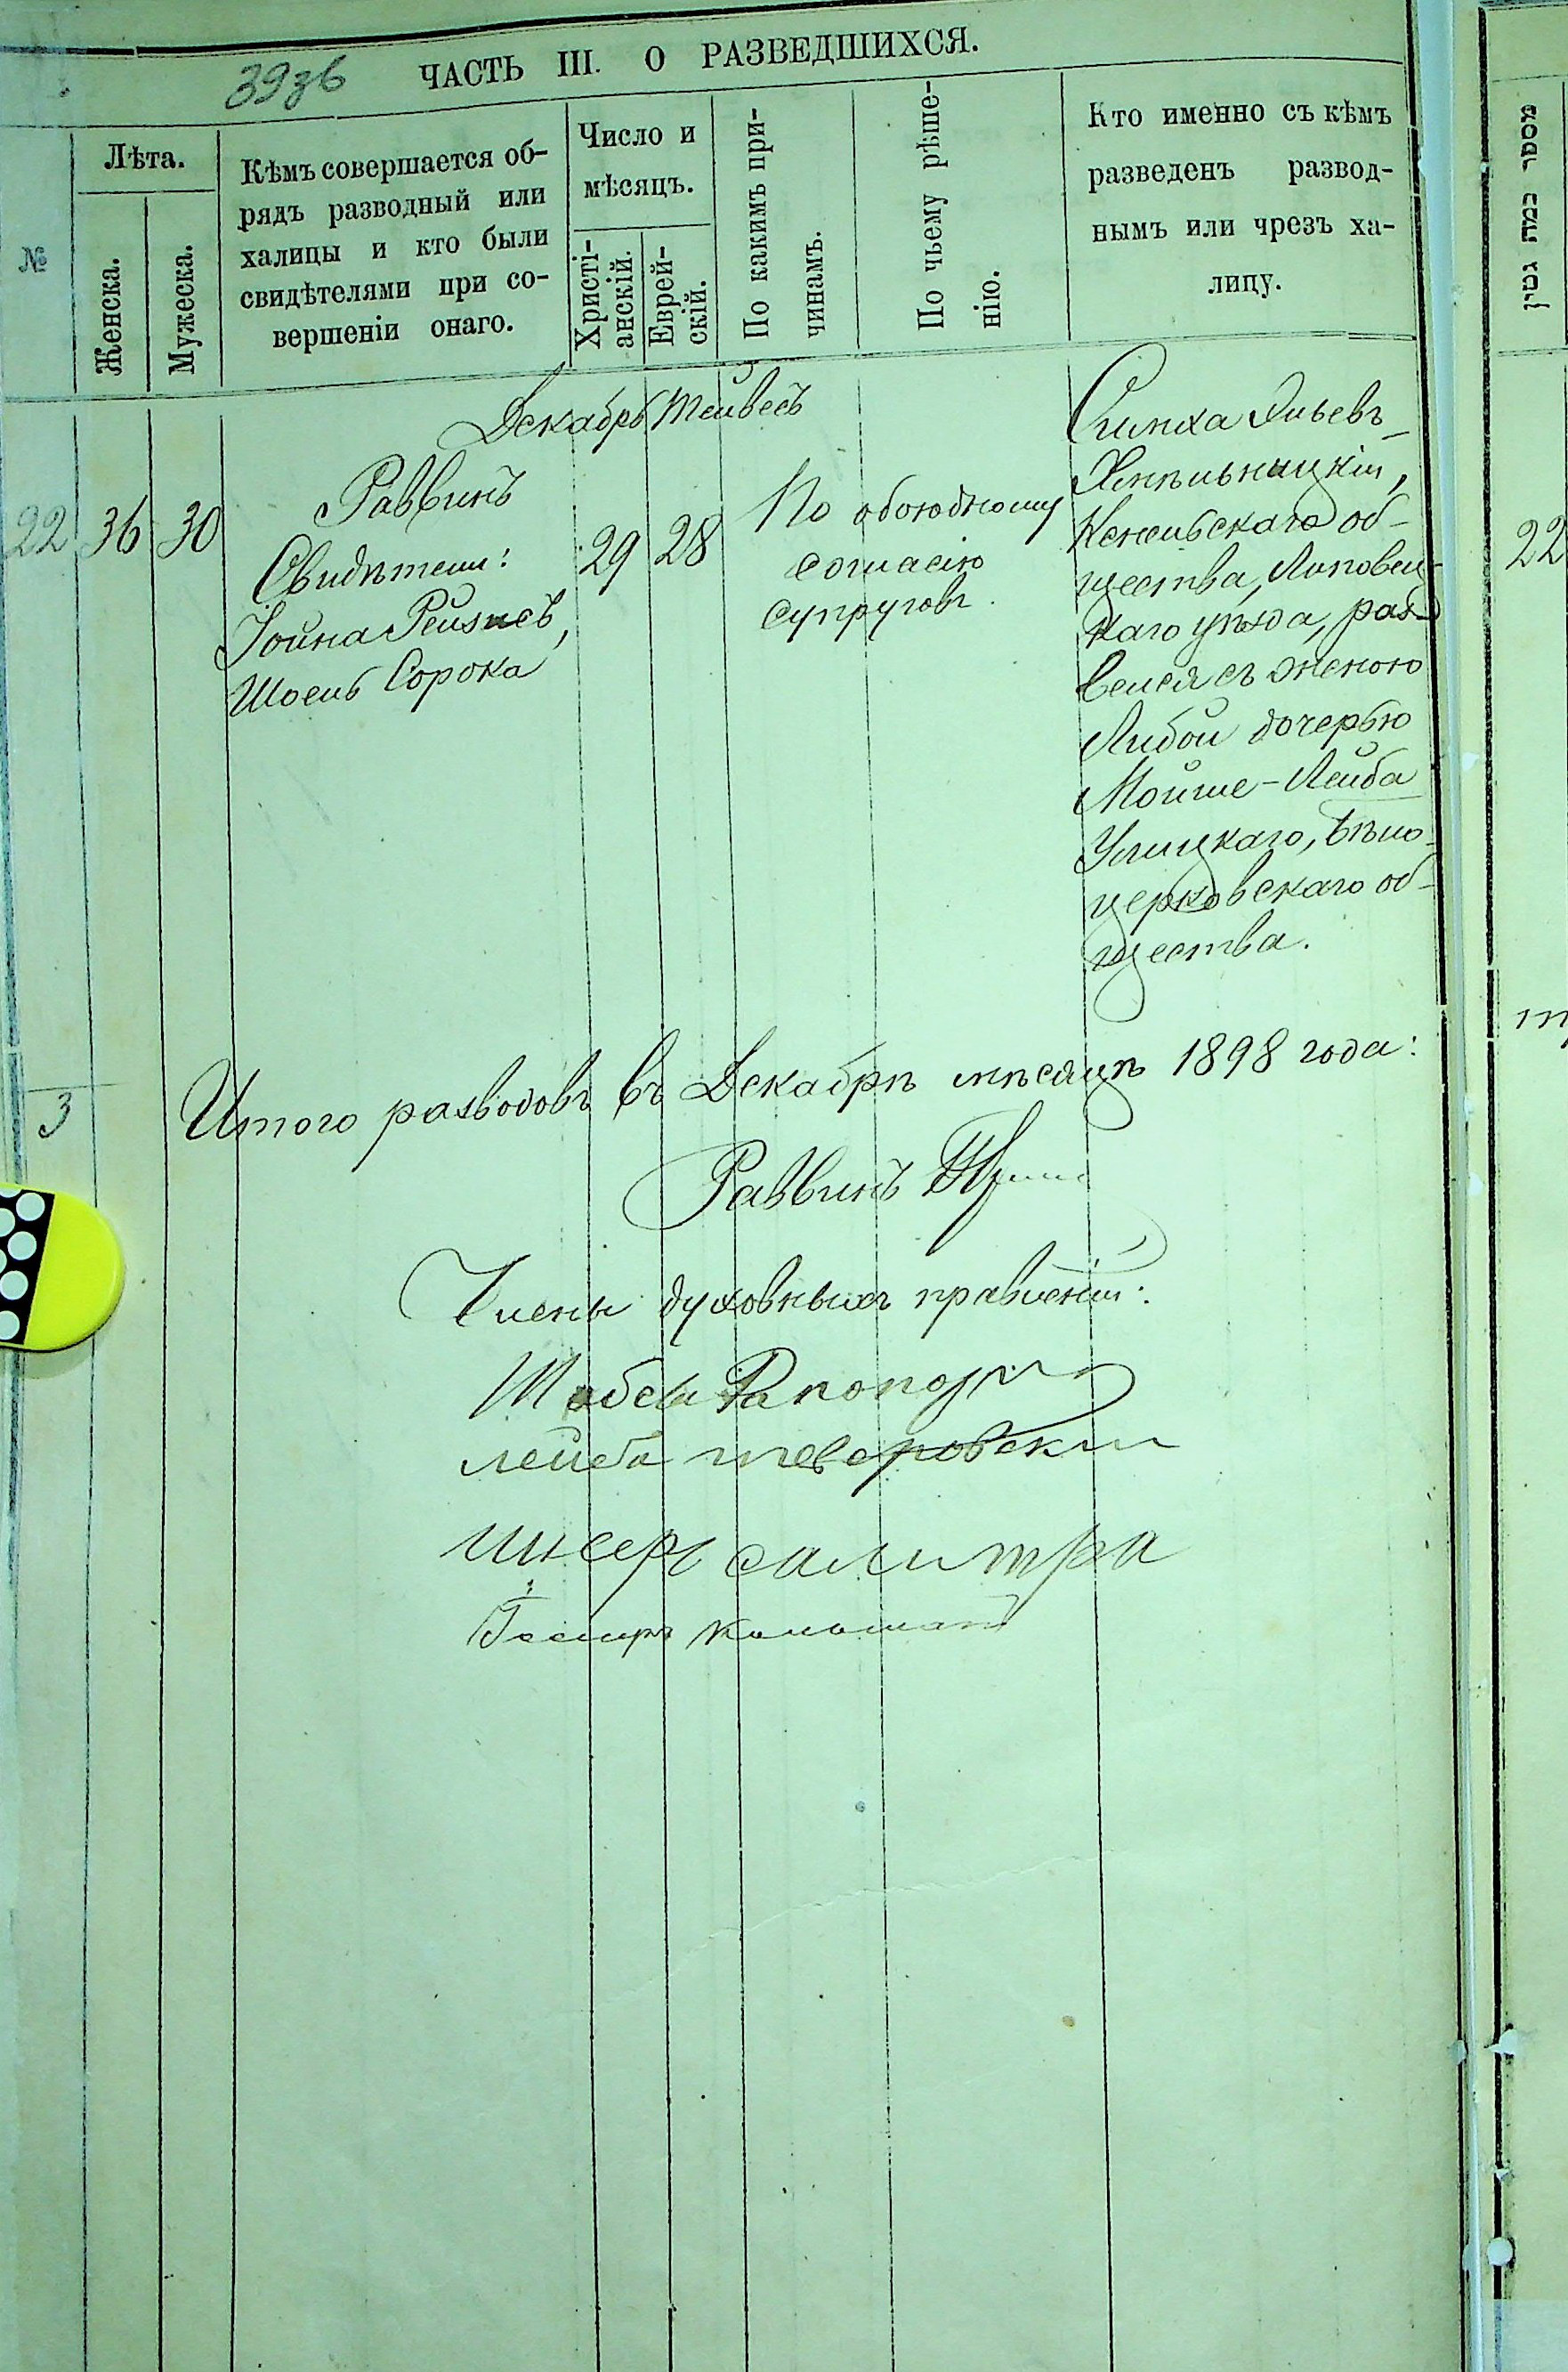 39зв
ЧАСТЬ III. О РАЗВЕДШИХСЯ.
№
Лѣта.
Женска.
Мужеска.
Кѣмъ совершается об-
рядъ разводный или
халицы и кто были
свидѣтелями при со-
вершеніи онаго.
Число и
мѣсяцъ.
Христі-
анскій.
Еврей-
скій.
По какимъ при-
чинамъ.
По чьему рѣше-
нію.
Кто именно съ кѣмъ
разведенъ развод-
нымъ или чрезъ ха-
лицу.
Декабрь Тейвесъ
22 36 30
Раввинъ
Свидѣтели:
Іойна Рейзисъ,
Шоель Сорока
29 28
По обоюдному
согласію
супруговъ.
Симха Эльевъ
Хмѣльницкій,
Кенельскаго об-
щества, Липовец-
каго уѣзда, раз-
велся съ женою
Либой дочерью
Мойше-Лейба
Улицкаго, Бѣло-
церковскаго об-
щества.
3
Итого разводовъ въ Декабрѣ мѣсяцѣ 1898 года:
Раввинъ
Члены духовныхъ правленій:
Шабса Рапопортъ
лейба тверовскій
салитра
מספר כמה גטין
22